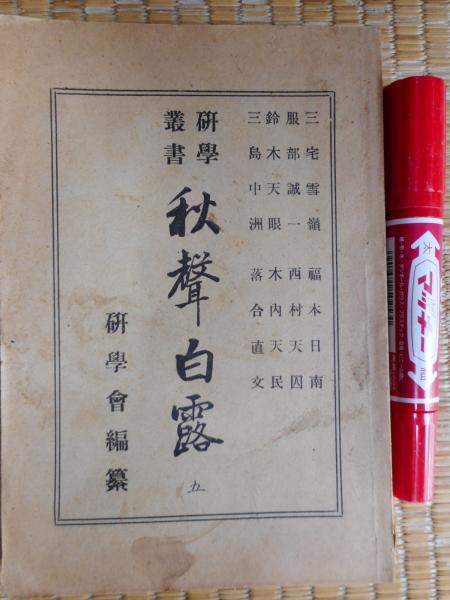 三宅雪嶺 福本日南
服部誠一 西村天囚
鈴木天眼 木内天民
三島中洲 落合直文
研學
叢書
秋聲白露
五
研學會編纂
太
マッキー